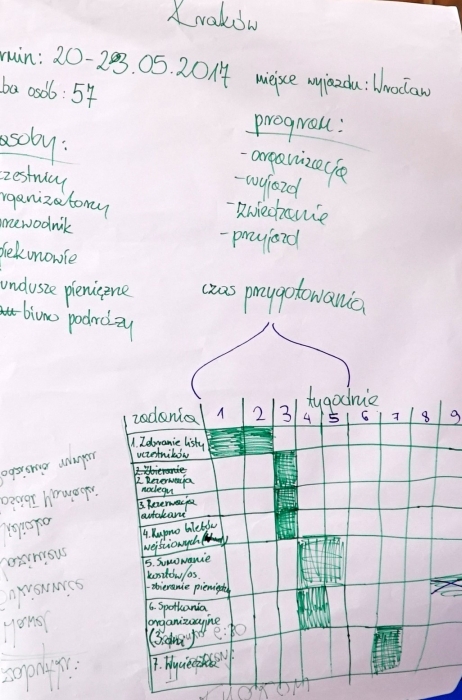 Kraków
rmin: 20-23.05.2017 miejsce wyjazdu: Wrocław
ba osób: 57
program:
- organizacja
- wyjazd
- zwiedzanie
- przyjazd
asoby:
czestnicy
rganizatorzy
rzewodnik
piekunowie
undusze pieniężne
biuro podróży
czas przygotowania
tygodnie
zadania 1 2 3 4 5 6 7 8 9
1. Zebranie listy
uczestników
2. Zbieranie
2. Rezerwacja
noclegu
3. Rezerwacja
autokaru
4. Kupno biletów
wejściowych
5. Sumowanie
kosztów/os.
- zbieranie pieniędzy
6. Spotkania
organizacyjne
(3 dni)
7. Wycieczka